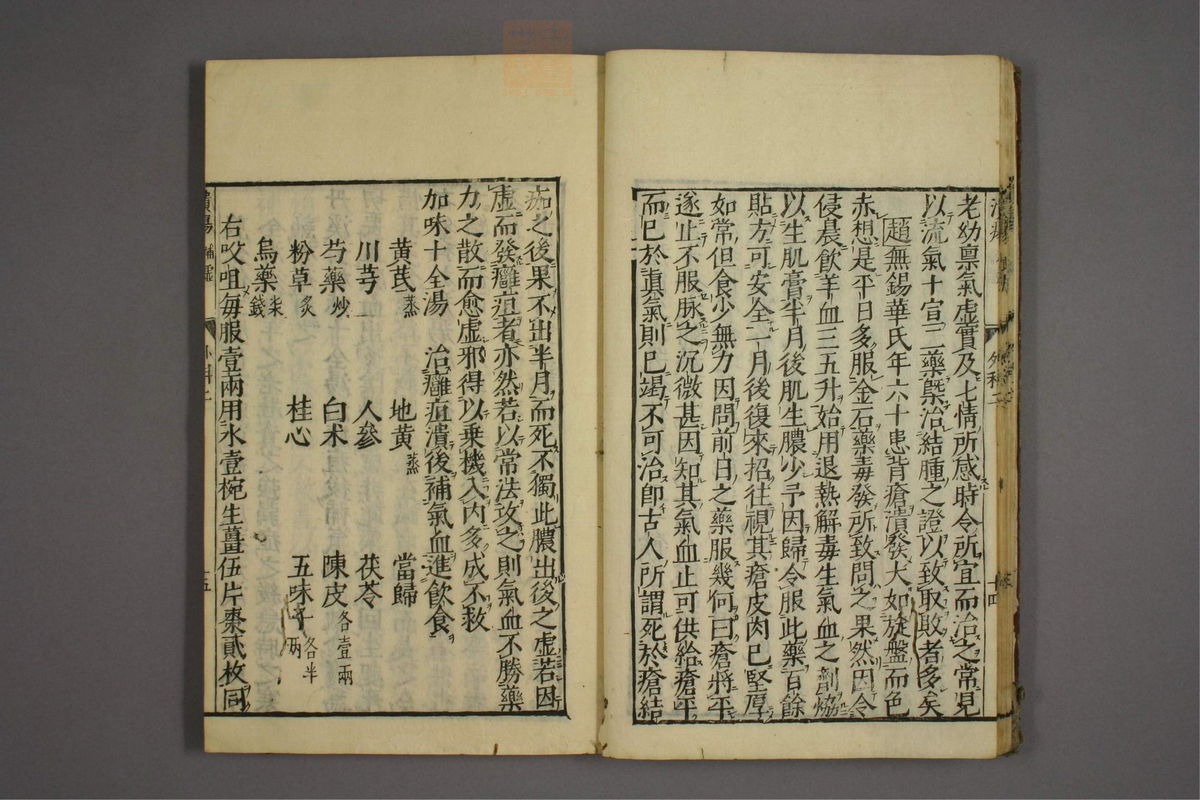 老幼禀氣虛實及七情所感時令所宜而治之常見
以流氣十宣二藥槩治結腫之證以致取敗者多矣
趙無錫華氏年六十患背瘡潰發大如旋盤而色
赤想是平日多服金石藥毒發所致問之果然因令
侵晨飲羊血三五升始用退熱解毒生氣血之劑
以生肌膏半月後肌生膿少予因歸令服此藥百餘
貼方可安全二月後復來招往視其瘡皮肉已堅厚
如常但食少無力因問前日之藥服幾何曰瘡將平
遂止不服脉之沉微甚因知其氣血止可供給瘡平
而已於眞氣則已竭不可治卽古人所謂死於瘡結
外科二
痂之後果不出半月而死不獨此膿出後之虛若因
虛而發癰疽者亦然若以常法攻之則氣血不勝藥
力之散而愈虛邪得以乘機入内多成不救
加味十全湯 治癰疽潰後補氣血進飲食
黃芪蒸 地黃蒸 當歸
川芎 人參 茯苓
芍藥炒 白术 陳皮各壹兩
粉草炙 桂心 五味子各半兩
烏藥柒錢
右㕮咀每服壹兩用水壹椀生薑伍片棗貳枚同